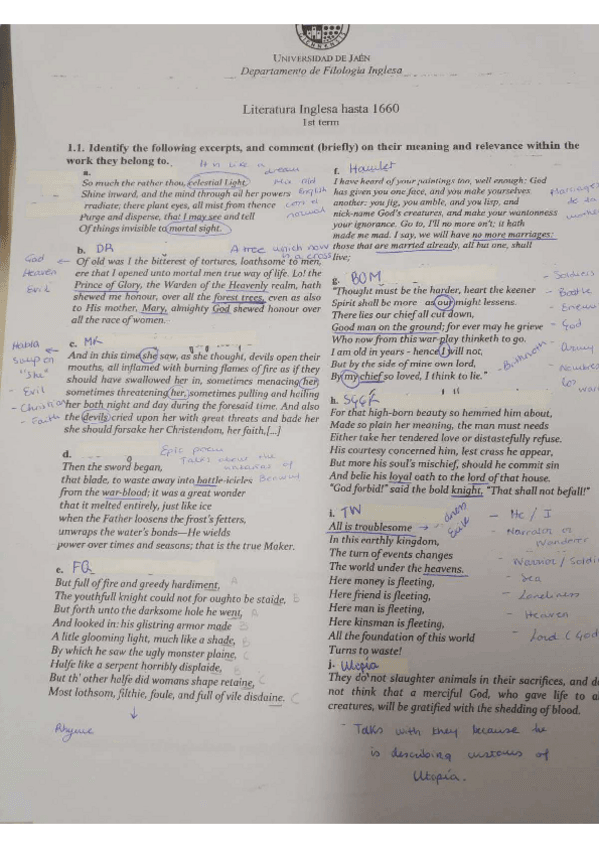 UNIVERSIDAD DE JAÉN
Departamento de Filología Inglesa
Literatura Inglesa hasta 1660
1st term
1.1. Identify the following excerpts, and comment (briefly) on their meaning and relevance within the
work they belong to.
a.
So much the rather thou, celestial Light,
Shine inward, and the mind through all her powers
irradiate; there plant eyes, all mist from thence
Purge and disperse, that I may see and tell
Of things invisible to mortal sight.
English
b. DR
A tree which now
is a cross
God
Heaven
Evil
Of old was I the bitterest of tortures, loathsome to men,
ere that I opened unto mortal men true way of life. Lo! the
Prince of Glory, the Warden of the Heavenly realm, hath
shewed me honour, over all the forest trees, even as also
to His mother, Mary, almighty God shewed honour over
all the race of women.
c. MK
"She"
- Evil
- Christian
- Faith
And in this time she saw, as she thought, devils open their
mouths, all inflamed with burning flames of fire as if they
should have swallowed her in, sometimes menacing her,
sometimes threatening her, sometimes pulling and hailing
her both night and day during the foresaid time. And also
the devils cried upon her with great threats and bade her
she should forsake her Christendom, her faith,[...]
d.
Epic poem
Talks about the
of
Beowulf
Then the sword began,
that blade, to waste away into battle-icicles
from the war-blood; it was a great wonder
that it melted entirely, just like ice
when the Father loosens the frost's fetters,
unwraps the water's bonds—He wields
power over times and seasons; that is the true Maker.
e. FQ
But full of fire and greedy hardiment, A
The youthfull knight could not for ought be staide, B
But forth unto the darksome hole he went, A
And looked in: his glistring armor made B
A litle glooming light, much like a shade, B
By which he saw the ugly monster plaine, C
Halfe like a serpent horribly displaide, B
But th' other halfe did womans shape retaine, C
Most lothsom, filthie, foule, and full of vile disdaine. C
Rhyme
f. Hamlet
I have heard of your paintings too, well enough; God
has given you one face, and you make yourselves
another: you jig, you amble, and you lisp, and
nick-name God's creatures, and make your wantonness
your ignorance. Go to, I'll no more on't; it hath
made me mad. I say, we will have no more marriages:
those that are married already, all but one, shall
live;
g. BOM
"Thought must be the harder, heart the keener
Spirit shall be more as our might lessens.
There lies our chief all cut down,
Good man on the ground; for ever may he grieve
Who now from this war-play thinketh to go.
I am old in years - hence I will not,
But by the side of mine own lord,
By my chief so loved, I think to lie."
- Soldiers
- Battle
- God
- Army
h. SGGK
For that high-born beauty so hemmed him about,
Made so plain her meaning, the man must needs
Either take her tendered love or distastefully refuse.
His courtesy concerned him, lest crass he appear,
But more his soul's mischief, should he commit sin
And belie his loyal oath to the lord of that house.
"God forbid!" said the bold knight, "That shall not befall!"
i. TW
All is troublesome
In this earthly kingdom,
The turn of events changes
The world under the heavens.
Here money is fleeting,
Here friend is fleeting,
Here man is fleeting,
Here kinsman is fleeting,
All the foundation of this world
Turns to waste!
- Me / I
- Narrator or
Wanderer
- Warrior / Soldi
- Sea
- Loneliness
- Heaven
- Lord (God
j. Utopia
They do not slaughter animals in their sacrifices, and do
not think that a merciful God, who gave life to a
creatures, will be gratified with the shedding of blood.
- Talks with they because he
is describing customs of
Utopia.